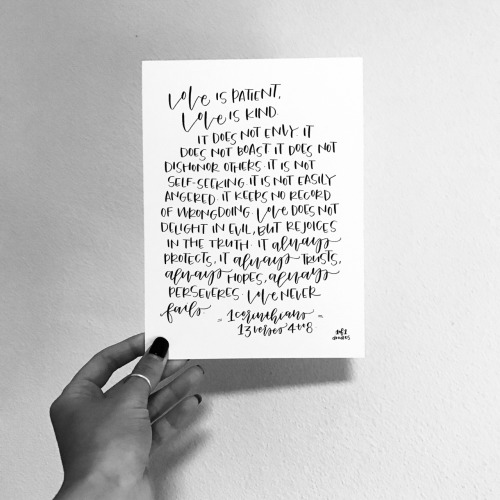 Love IS PATIENT,
Love IS KIND.
IT DOES NOT ENVY. IT
DOES NOT BOAST IT DOES NOT
DISHONOR OTHERS. IT IS NOT
SELF-SEEKING. IT IS NOT EASILY
ANGERED. IT KEEPS NO RECORD
OF WRONGDOING. Love DOES NOT
DELIGHT IN EVIL, BUT REJOICES
IN THE TRUTH. IT always
PROTECTS, IT always TRUSTS,
always HOPES, always
PERSEVERES. Love NEVER
fails
- 1corinthians
13 verses 4to8.
doodles